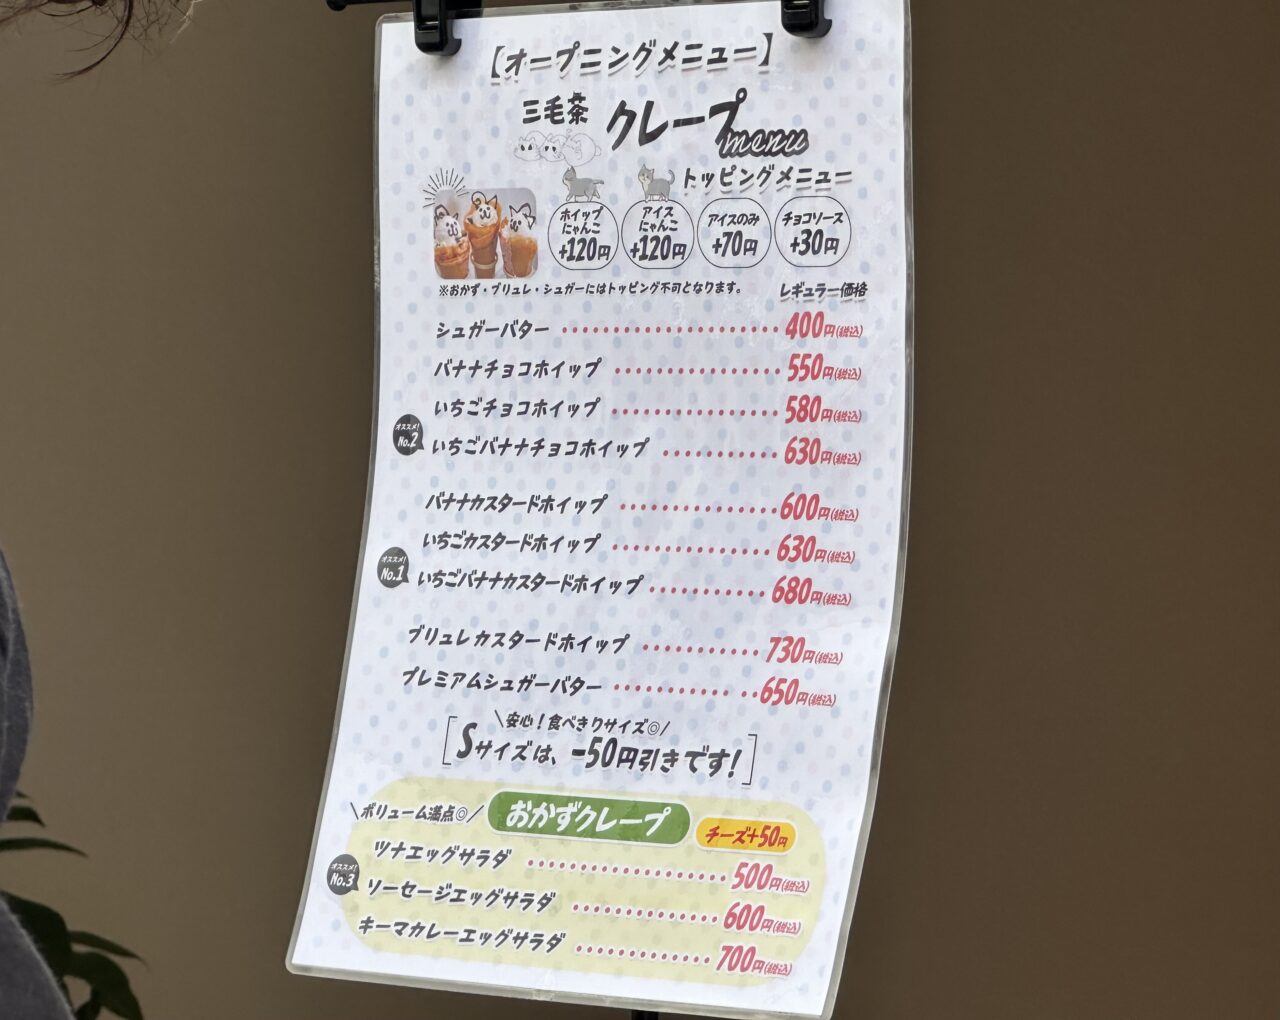 【オープニングメニュー】
三毛茶 クレープ menu
トッピングメニュー
ホイップにゃんこ +120円
アイスにゃんこ +120円
アイスのみ +70円
チョコソース +30円
※おかず・ブリュレ・シュガーにはトッピング不可となります。
レギュラー価格
シュガーバター 400円(税込)
バナナチョコホイップ 550円(税込)
いちごチョコホイップ 580円(税込)
オススメ! No.2 いちごバナナチョコホイップ 630円(税込)
バナナカスタードホイップ 600円(税込)
いちごカスタードホイップ 630円(税込)
オススメ! No.1 いちごバナナカスタードホイップ 680円(税込)
ブリュレカスタードホイップ 730円(税込)
プレミアムシュガーバター 650円(税込)
\安心!食べきりサイズ◎/
[Sサイズは、-50円引きです!]
\ボリューム満点◎/ おかずクレープ チーズ+50円
ツナエッグサラダ 500円(税込)
オススメ! No.3 ソーセージエッグサラダ 600円(税込)
キーマカレーエッグサラダ 700円(税込)